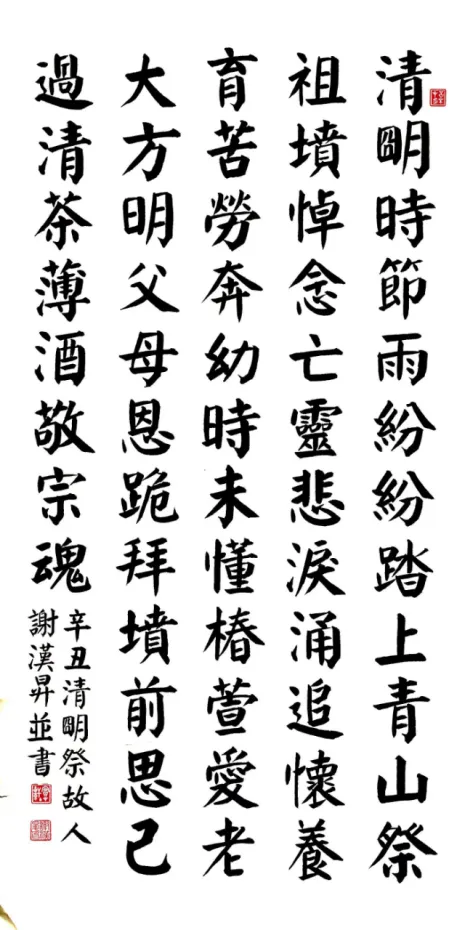 清朙時節雨紛紛踏上青山祭
祖墳悼念亡靈悲淚涌追懷養
育苦勞奔幼時未懂椿萱愛老
大方明父母恩跪拜墳前思己
過清茶薄酒敬宗魂
辛丑清朙祭故人
謝漢昇並書